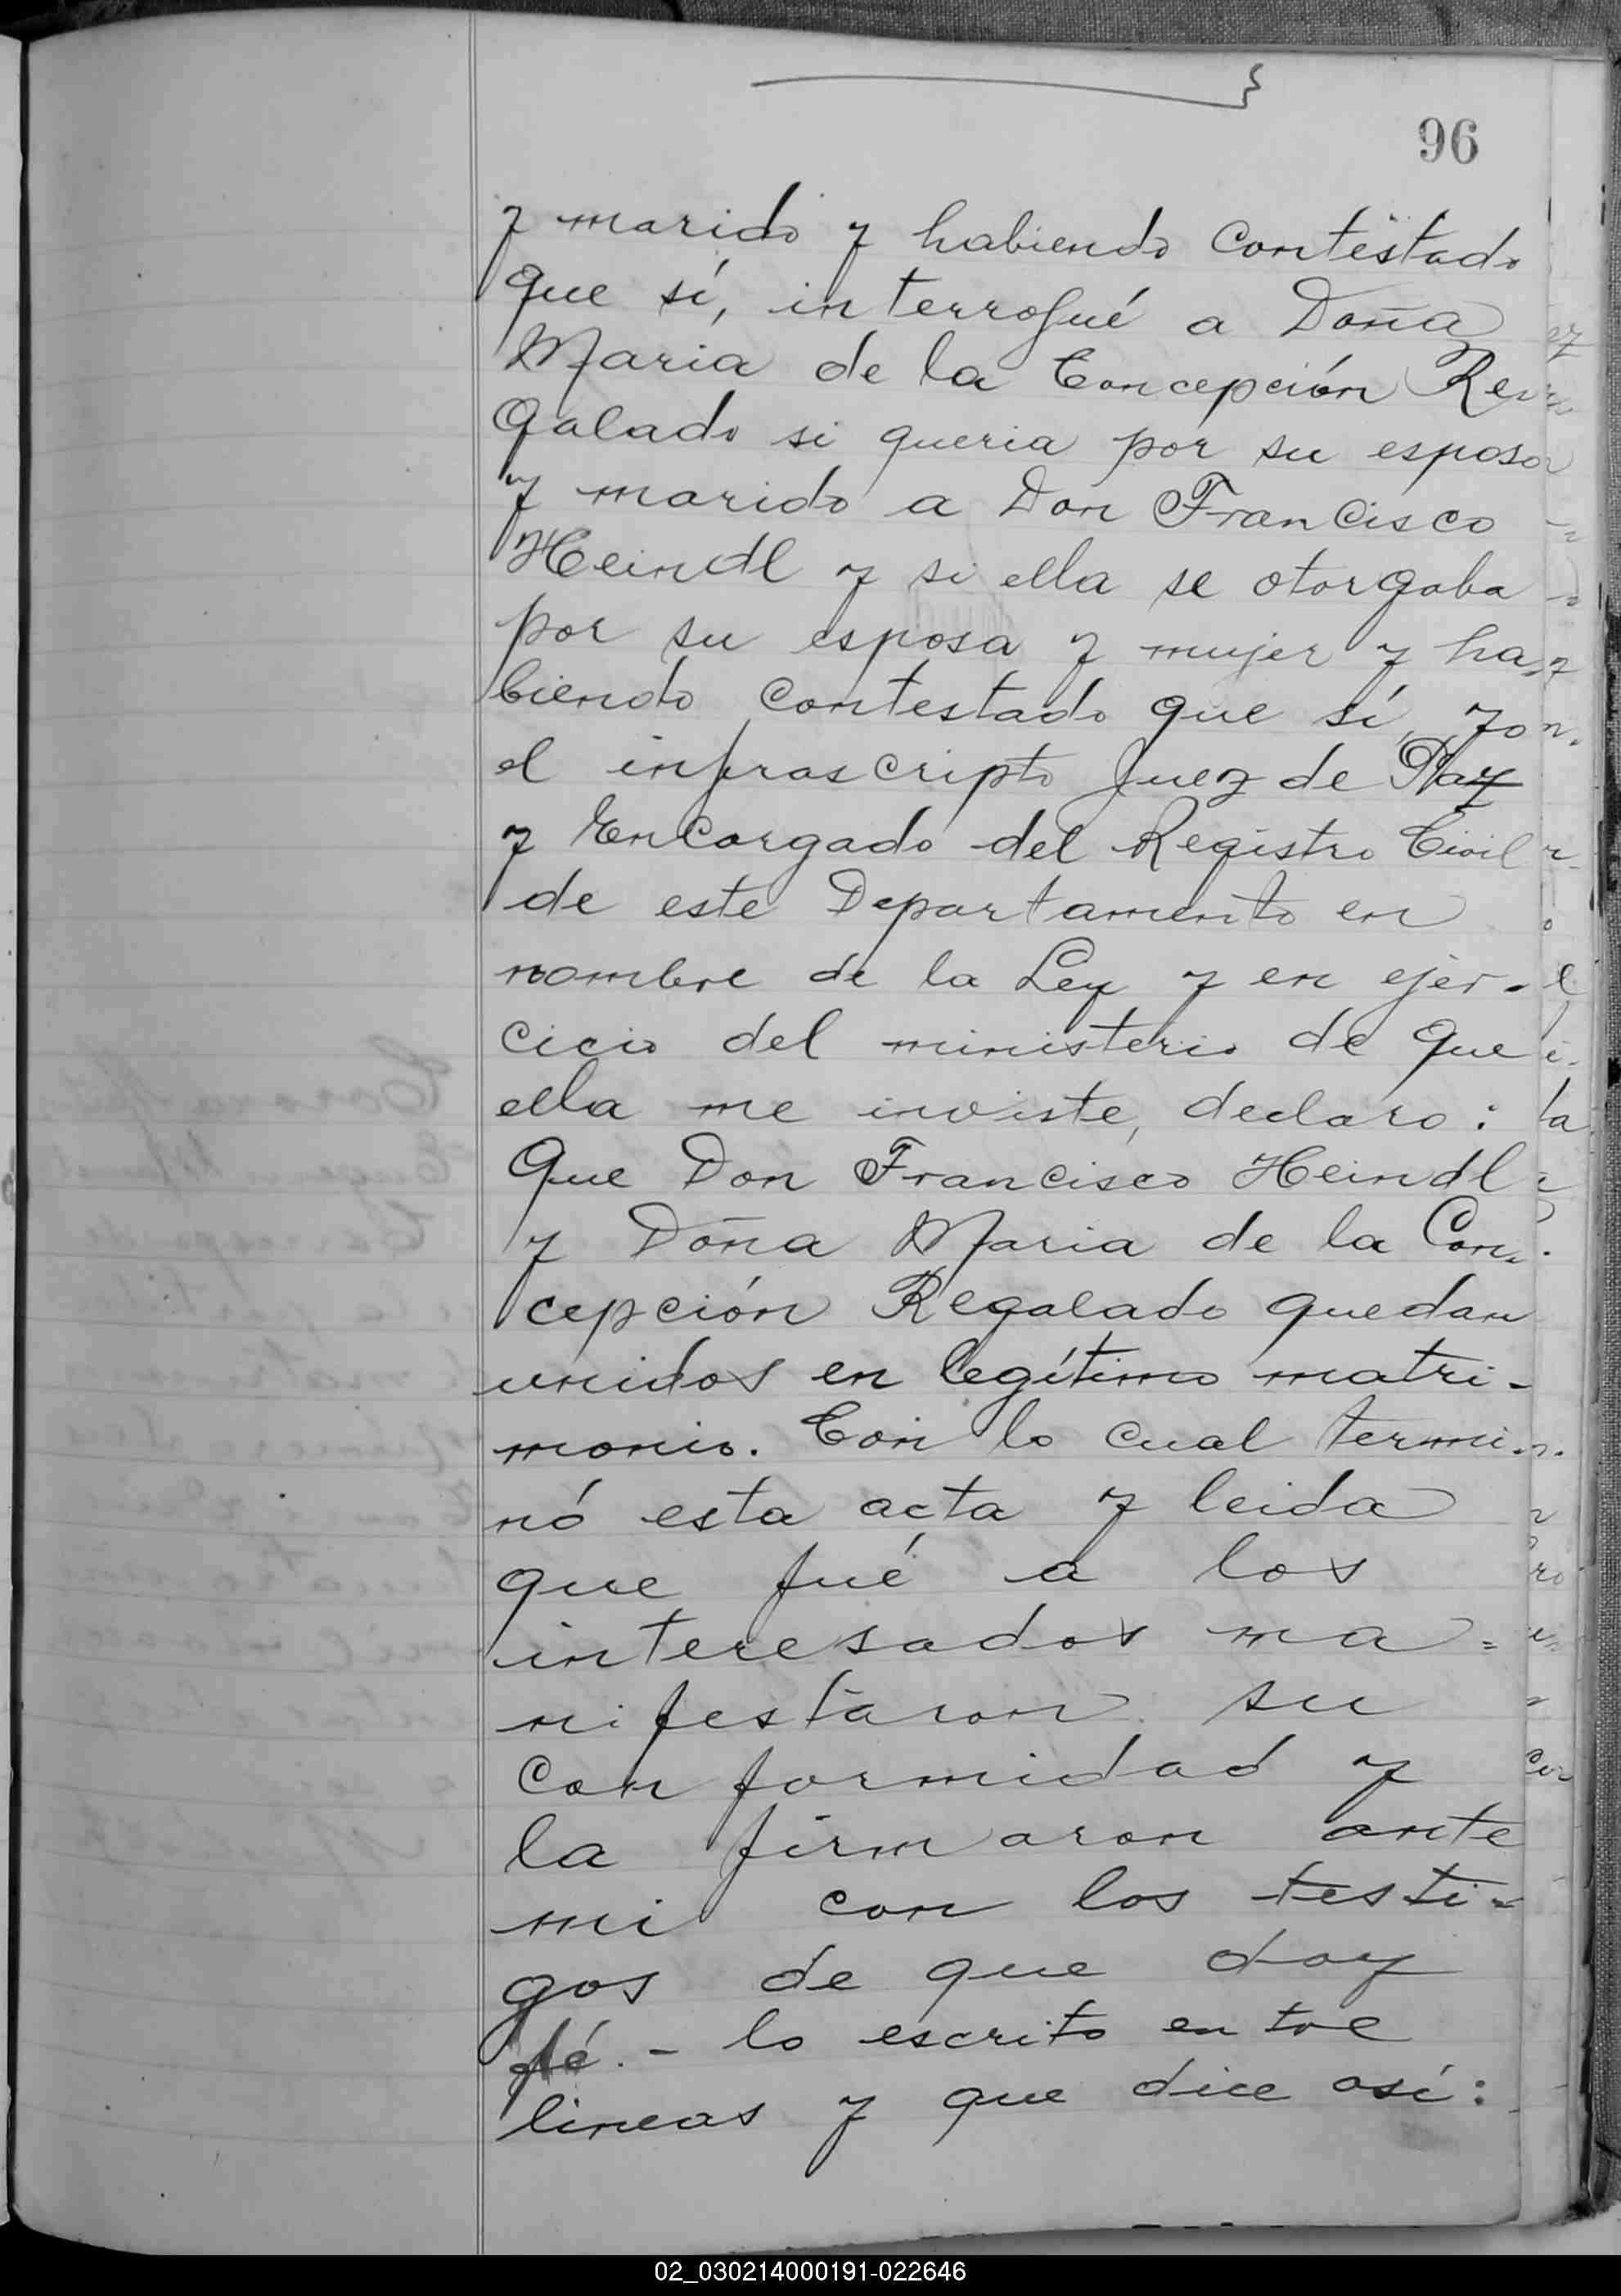 96
y marido y habiendo contestado
que sí, interrogué a Doña
Maria de la Concepción Re
galado si queria por su esposo
y marido a Don Francisco
Heindl y si ella se otorgaba
por su esposa y mujer y ha
biendo contestado que sí, yo
el infrascripto Juez de Paz
y Encargado del Registro Civil
de este Departamento en
nombre de la Ley y en ejer-
cicio del ministerio de que
ella me inviste, declaro:
Que Don Francisco Heindl
y Doña Maria de la Con-
cepción Regalado quedan
unidos en legítimo matri-
monio. Con lo cual termi-
nó esta acta y leida
que fué a los
interesados ma=
nifestaron su
conformidad y
la firmaron ante
mi con los testi-
gos de que doy
fé. - lo escrito entre
lineas y que dice así:
02_030214000191-022646